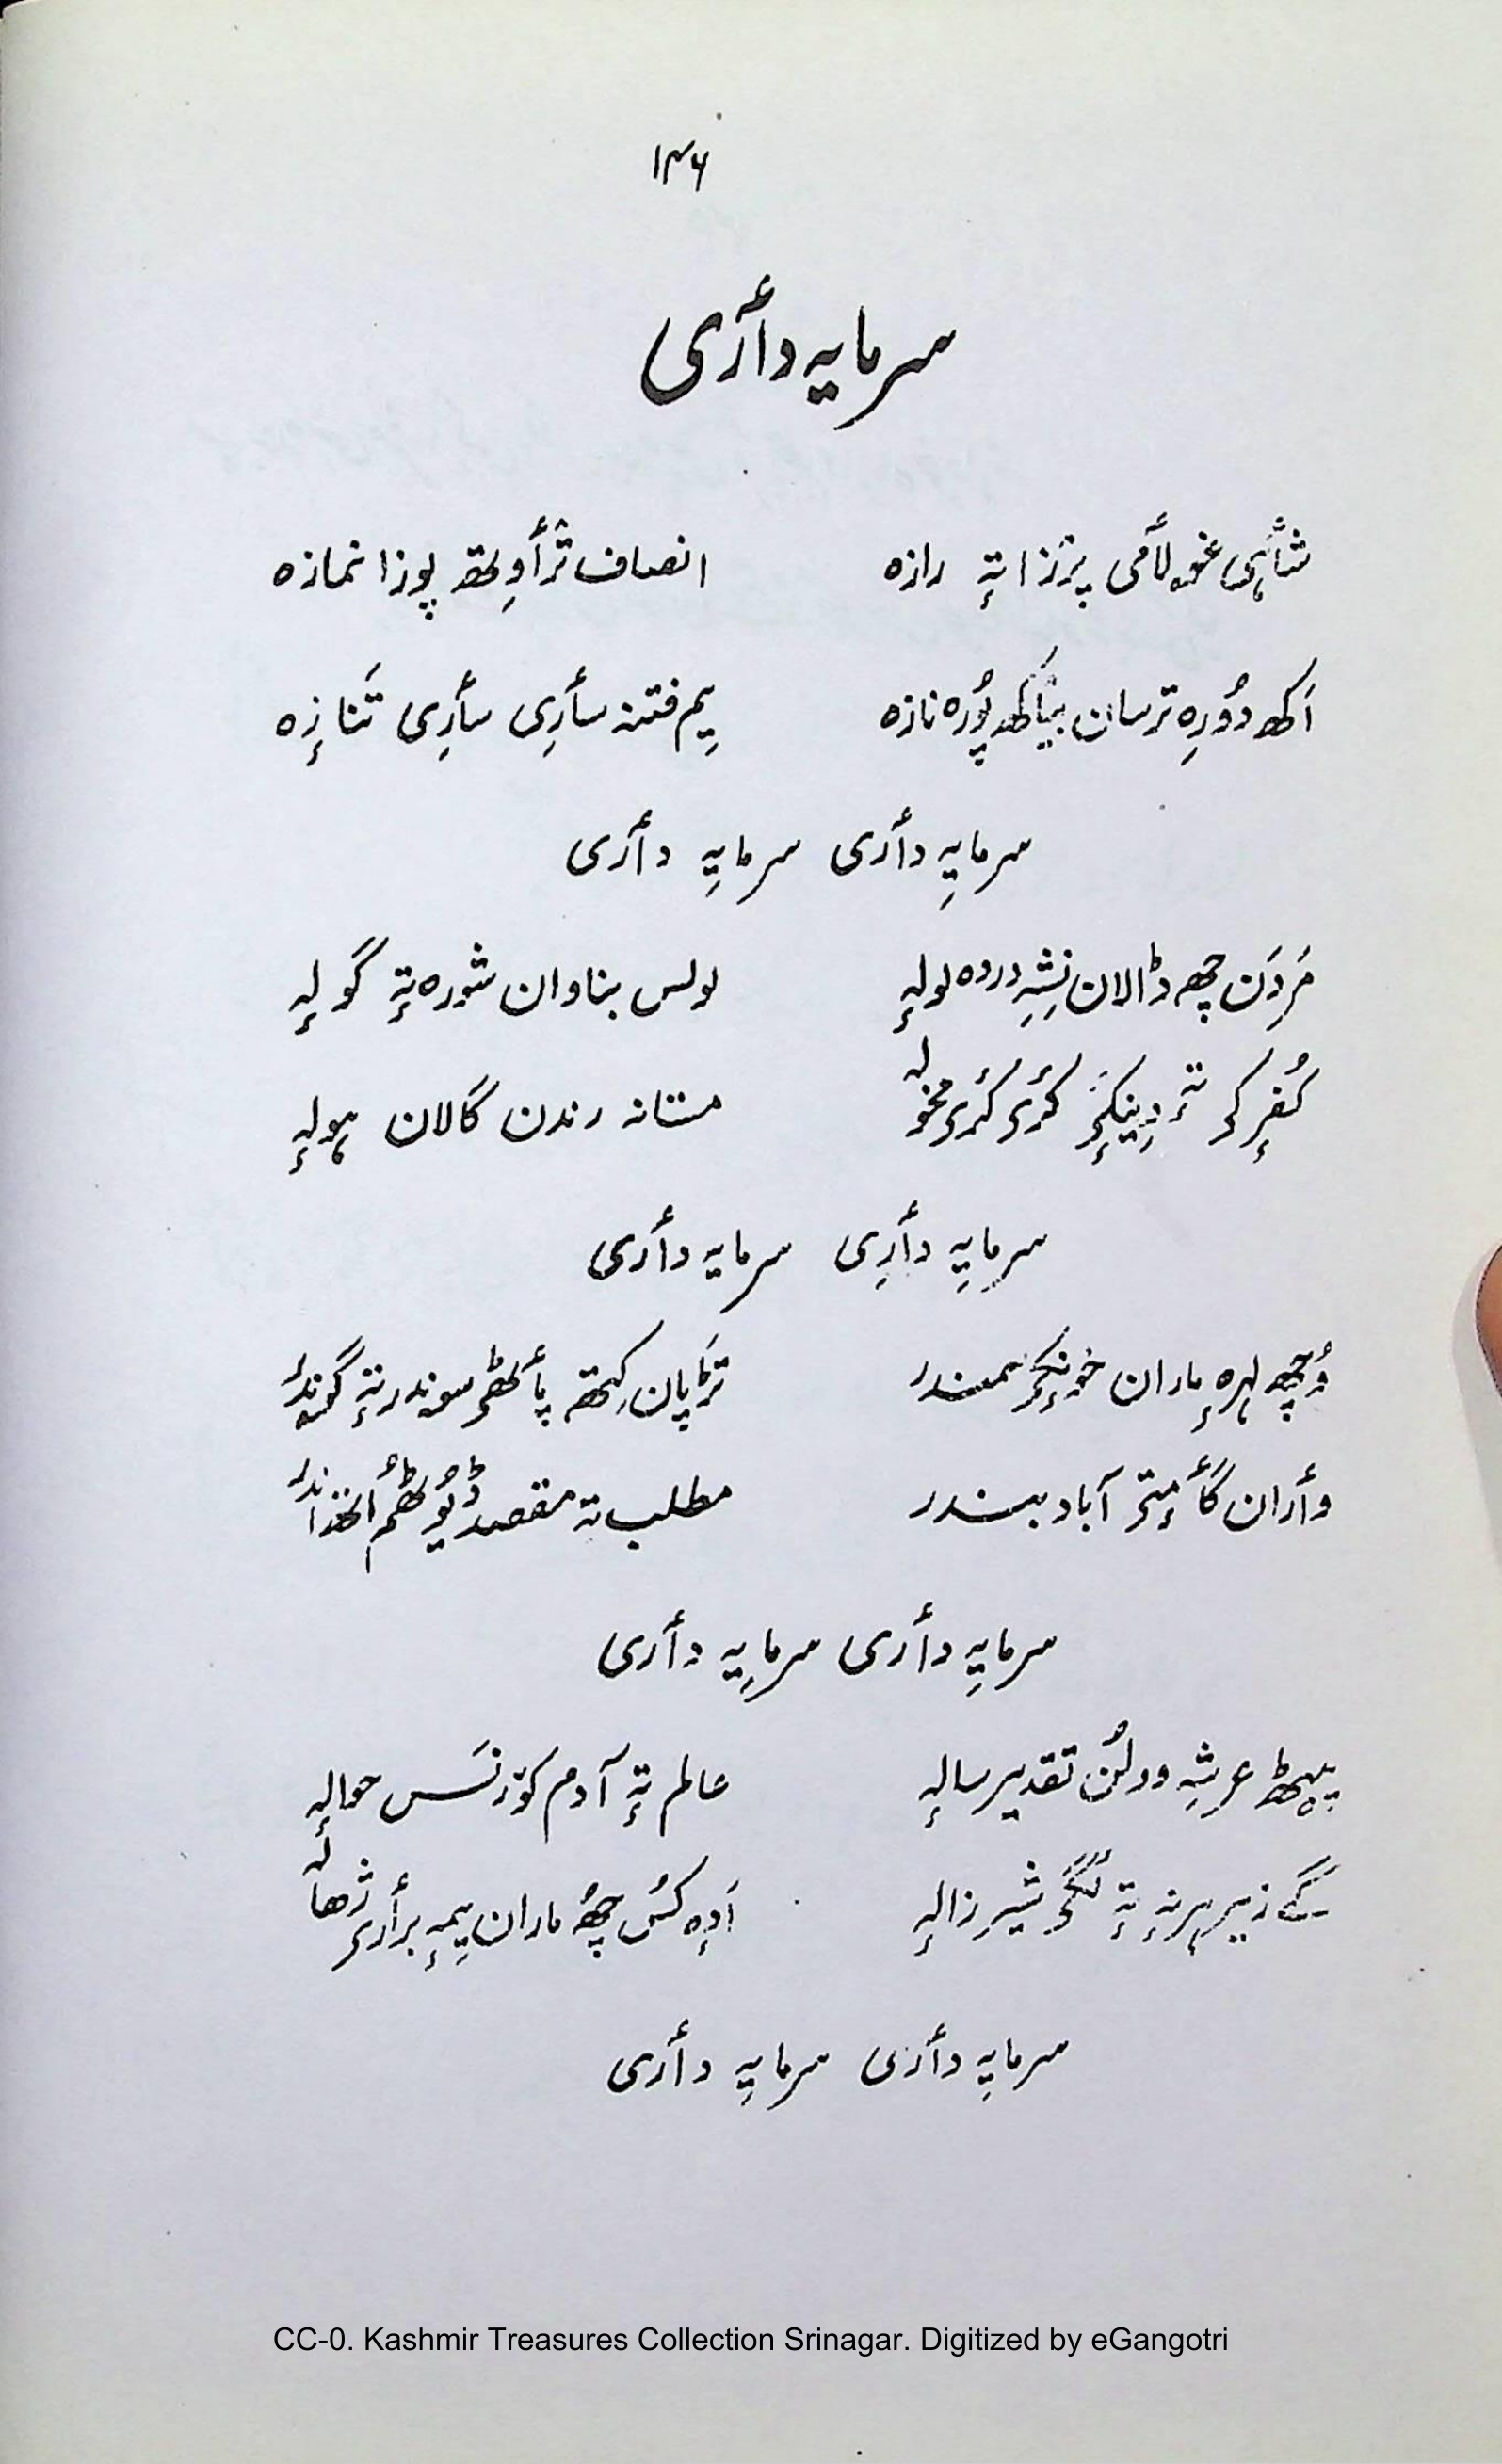 ۱۴۶
سرمایہ دأری
شٲہی غۄلٲمی پرٛزا تہٕ رازہ انصاف ترٛٲوِتھ پوزا نمازہ
اَکھ دُورِہ ترسان بیٛاکھ پُورہ نازہ یِم فتنہ سأرِی سأرِی تَنازٕہ
سرمایہِ دأری سرمایہِ دأری
مَردَن چھِ ڈالان نِشہِ دردہ لولہٕ لولس بناوان شورہ تہٕ گولہٕ
کُفرٕکۍ تہٕ دِینکۍ کٔرۍ کٔرۍ مخولہ مستانہ رندن گالان ہولہٕ
سرمایہِ دأرِی سرمایہ دأری
وُچھ لہرٕہ ماران خونٕکۍ سمندر ترٛاپان کِتھہ پأٹھۍ سوندر تہٕ گوندر
وأران گأمٕتۍ آباد بندر مطلب تہ مقصد ڈیُوٹھُم اتھ اندر
سرمایہِ دأری سرمایہِ دأری
پیٹھ عرشہِ وولُن تقدیر سالہٕ عالم تہٕ آدم کوٚرنَس حوالہٕ
گے زیر ہرنہٕ تہٕ لٔگۍ شیرِ زالہٕ اَدٕہ کُس چھُ ماران یِمہٕ برأرۍ ژھالہ
سرمایہِ دأری سرمایہِ دأری
CC-0. Kashmir Treasures Collection Srinagar. Digitized by eGangotri